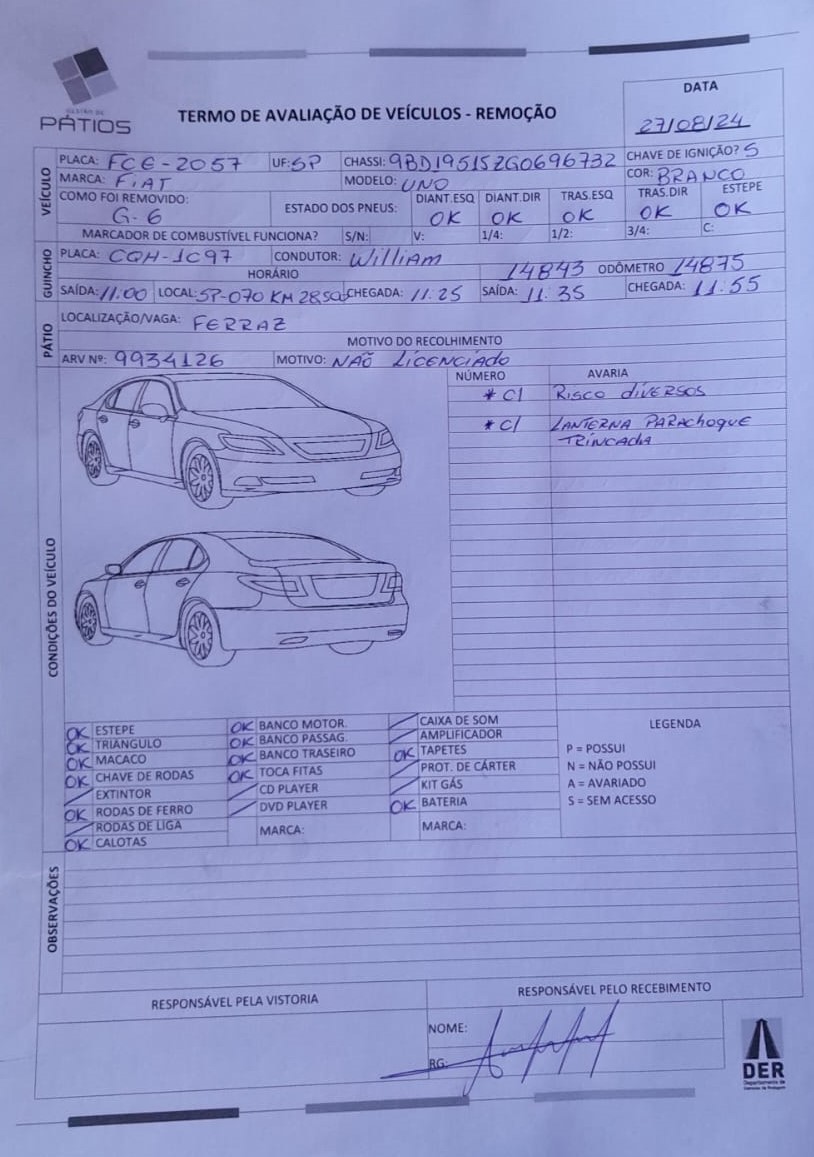 GESTÃO DE
PÁTIOS
TERMO DE AVALIAÇÃO DE VEÍCULOS - REMOÇÃO
DATA
27/08/24
VEÍCULO
PLACA: FCE-2057 UF: SP CHASSI: 9BD195152G0696732 CHAVE DE IGNIÇÃO? S
MARCA: FIAT MODELO: UNO COR: BRANCO
COMO FOI REMOVIDO: ESTADO DOS PNEUS: DIANT.ESQ DIANT.DIR TRAS.ESQ TRAS.DIR ESTEPE
G-6 OK OK OK OK OK
MARCADOR DE COMBUSTÍVEL FUNCIONA? S/N: V: 1/4: 1/2: 3/4: C:
GUINCHO
PLACA: CQH-1C97 CONDUTOR: William
HORÁRIO 14843 ODÔMETRO 14875
SAÍDA: 11.00 LOCAL: SP-070 KM 28500 CHEGADA: 11.25 SAÍDA: 11.35 CHEGADA: 11.55
PÁTIO
LOCALIZAÇÃO/VAGA: FERRAZ
MOTIVO DO RECOLHIMENTO
ARV Nº: 9934126 MOTIVO: NÃO LICENCIADO
CONDIÇÕES DO VEÍCULO
NÚMERO AVARIA
* C/ RISCO DIVERSOS
* C/ LANTERNA PARACHOQUE
TRINCADA
OK ESTEPE OK BANCO MOTOR. CAIXA DE SOM
OK TRIANGULO OK BANCO PASSAG. AMPLIFICADOR
OK MACACO OK BANCO TRASEIRO OK TAPETES
OK CHAVE DE RODAS OK TOCA FITAS PROT. DE CÁRTER
EXTINTOR CD PLAYER KIT GÁS
OK RODAS DE FERRO DVD PLAYER OK BATERIA
RODAS DE LIGA MARCA: MARCA:
OK CALOTAS
LEGENDA
P = POSSUI
N = NÃO POSSUI
A = AVARIADO
S = SEM ACESSO
OBSERVAÇÕES
RESPONSÁVEL PELA VISTORIA RESPONSÁVEL PELO RECEBIMENTO
NOME:
RG:
DER
Departamento de